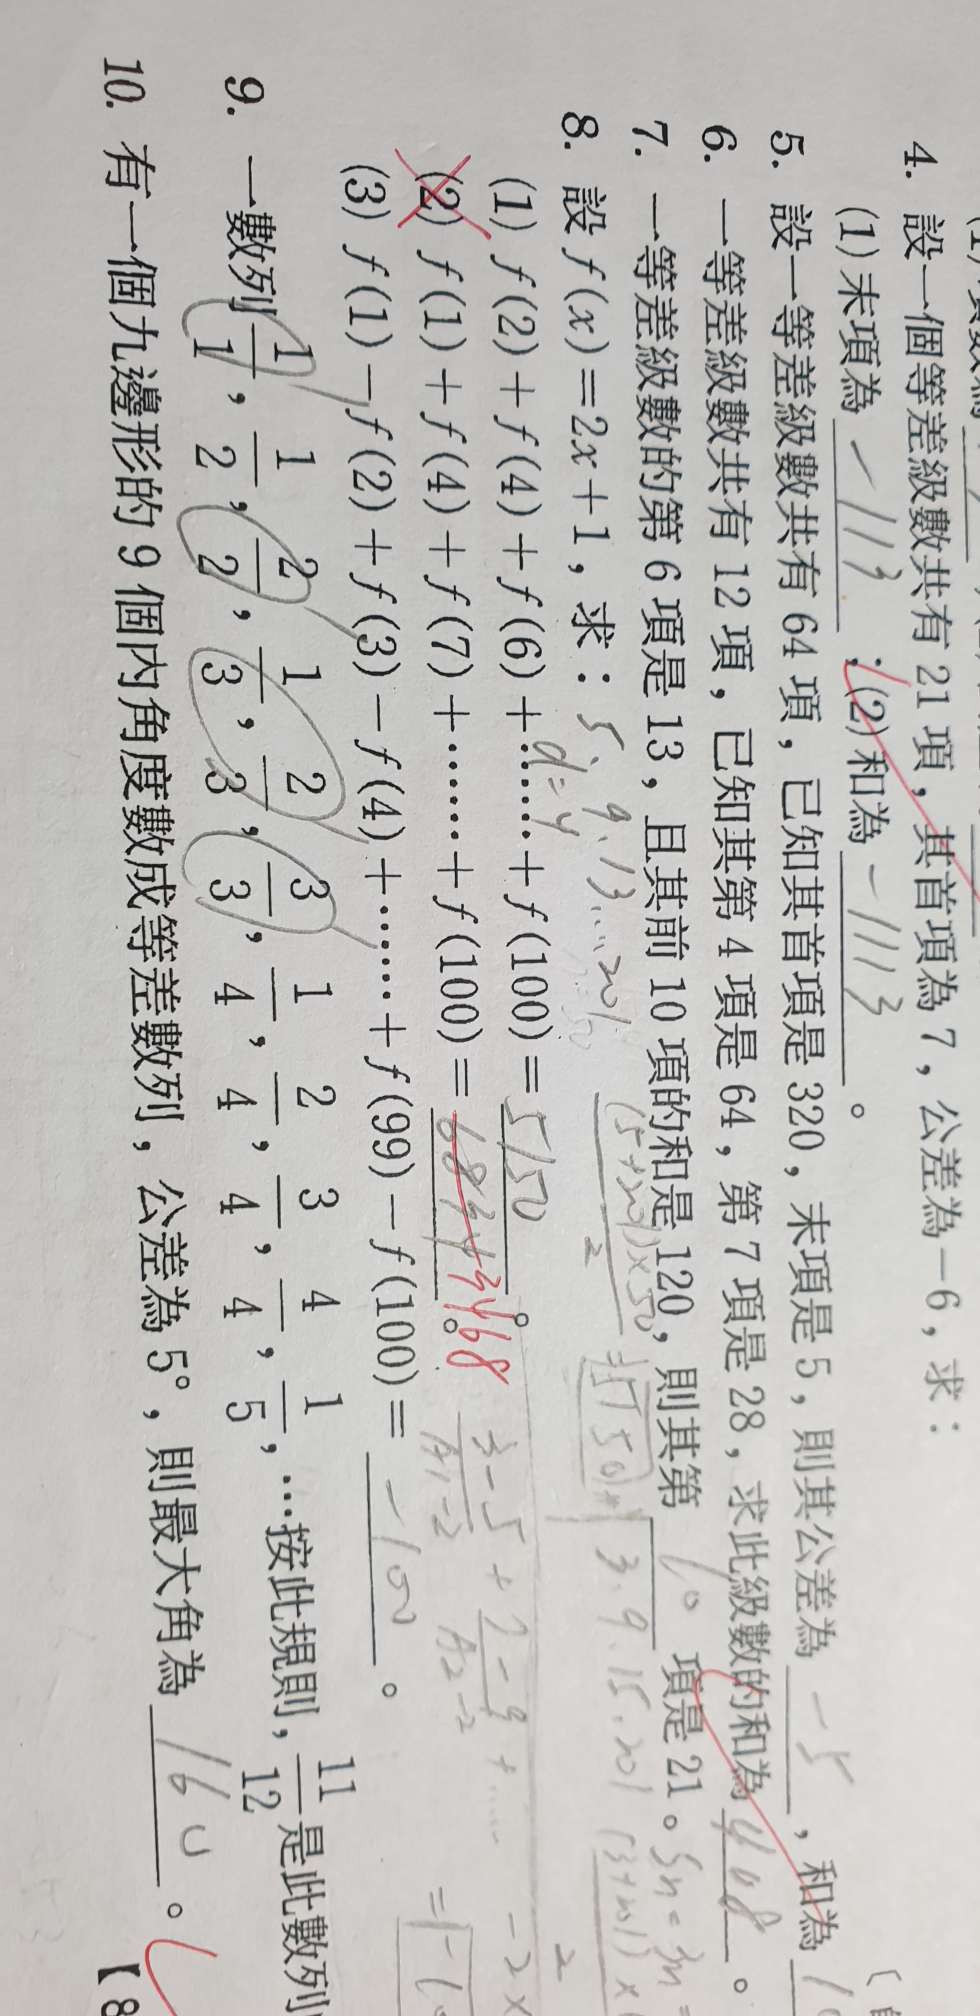 4. 設一個等差級數共有 21 項，其首項為 7，公差為－6，求：
(1)末項為 －113 ；(2)和為 －1113 。
5. 設一等差級數共有 64 項，已知其首項是 320，末項是 5，則其公差為 －5 ，和為
6. 一等差級數共有 12 項，已知其第 4 項是 64，第 7 項是 28，求此級數的和為 408 。
7. 一等差級數的第 6 項是 13，且其前 10 項的和是 120，則其第 10 項是 21。
8. 設 f(x)＝2x＋1，求： 5、9、13...201
d=4
(5+201)×50
2
=5150
(1) f(2)＋f(4)＋f(6)＋……＋f(100)＝ 5150 。
(2) f(1)＋f(4)＋f(7)＋……＋f(100)＝ 3468 。
3、9、15、201
(3) f(1)－f(2)＋f(3)－f(4)＋……＋f(99)－f(100)＝ －100 。
3－5＋7－9＋……
A1=-2 A2=-2
9. 一數列 1/1，1/2，2/2，1/3，2/3，3/3，1/4，2/4，3/4，4/4，1/5，…按此規則，11/12 是此數列
10. 有一個九邊形的 9 個內角度數成等差數列，公差為 5°，則最大角為 160 。
【8